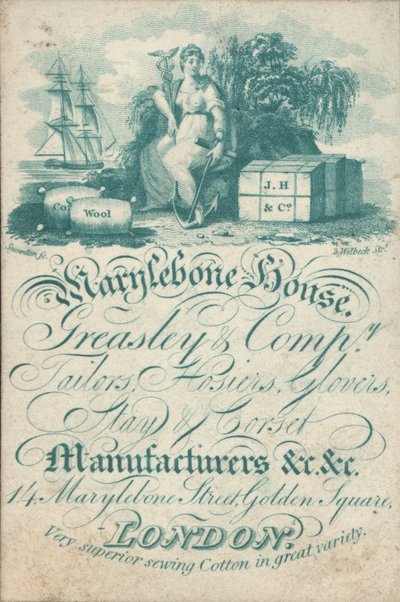 J. H
& Co.
Co
Wool
2 Welbeck Str.
Marylebone House.
Greasley & Compy.
Tailors, Hosiers, Glovers,
Stay & Corset
Manufacturers &c. &c.
14 Marylebone Street, Golden Square,
LONDON.
Very superior sewing Cotton in great variety.